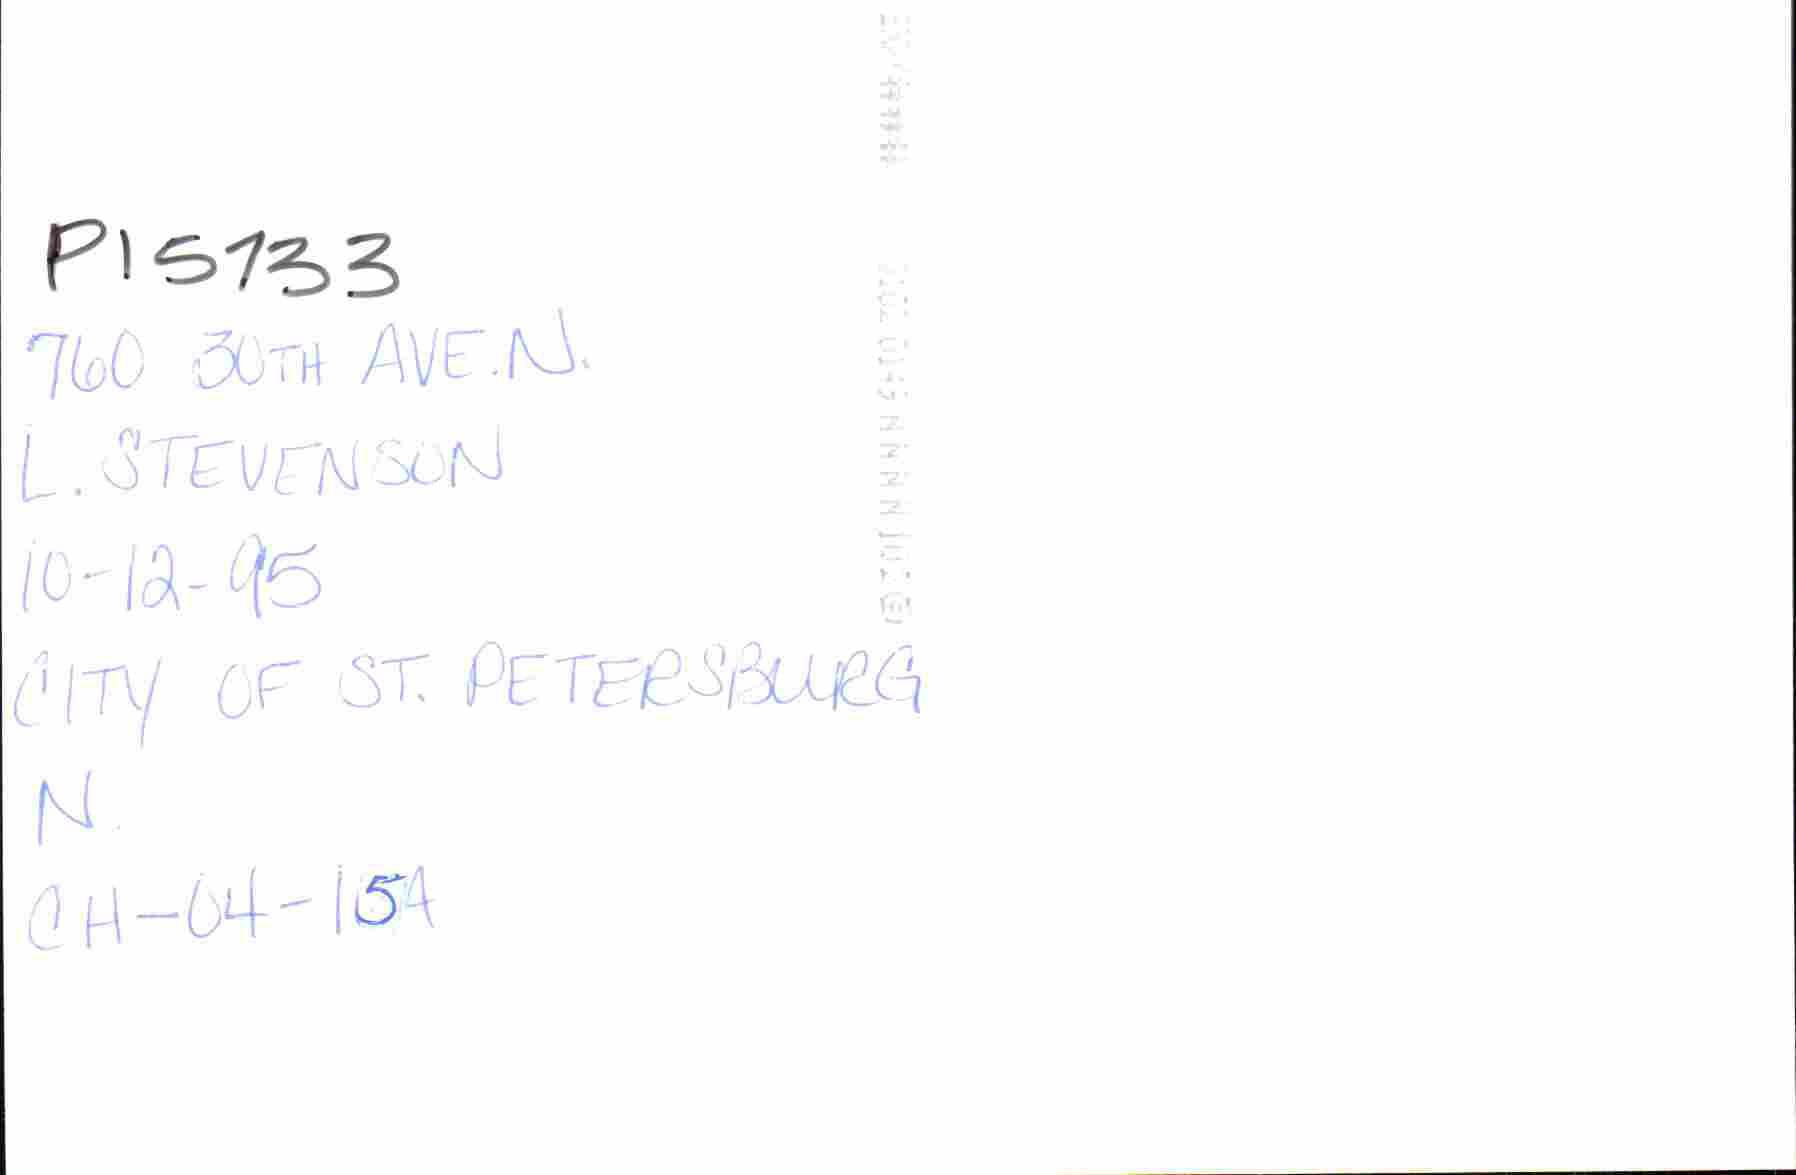 PI5733
760 30TH AVE.N.
L. STEVENSON
10-12-95
CITY OF ST. PETERSBURG
N.
CH-04-15A